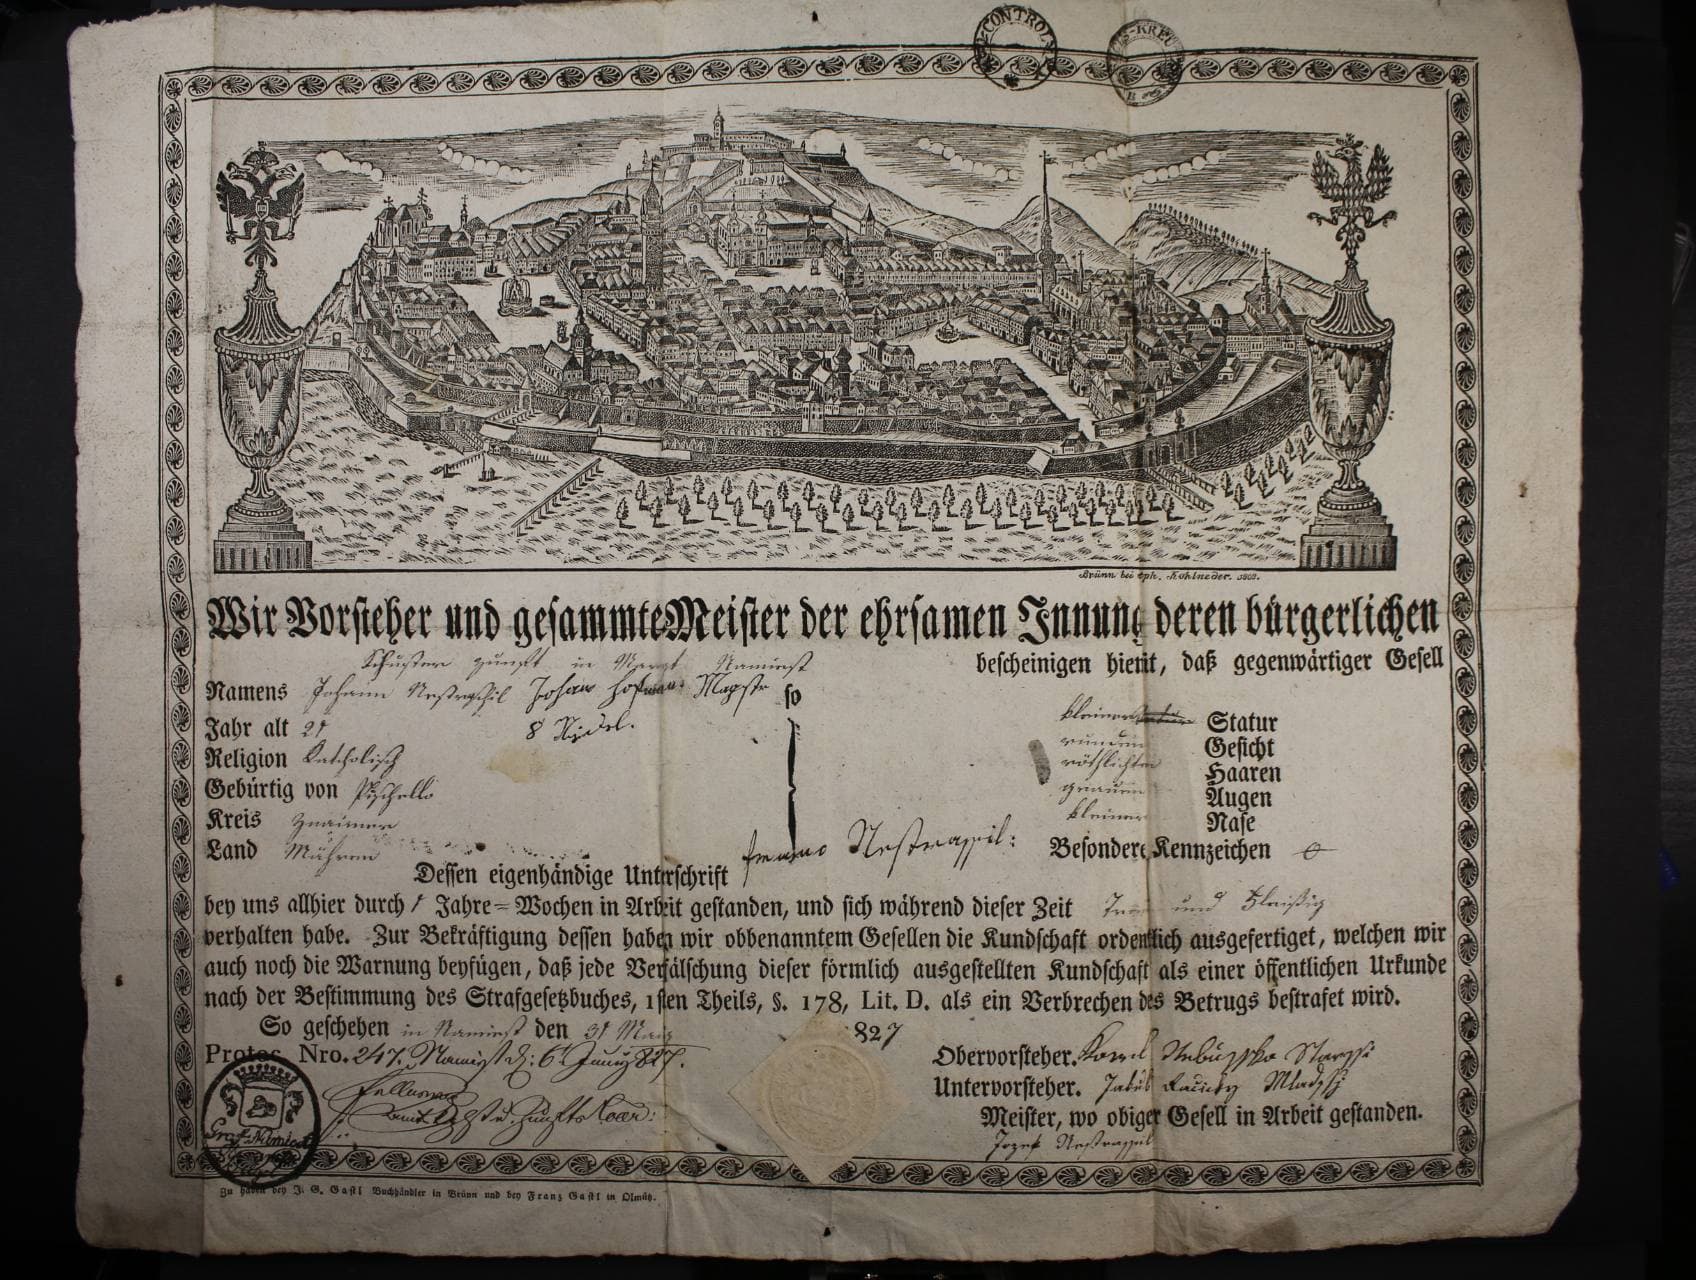 CONTROL
Brünn bei Jph. Kohlneder. 1808.
Wir Vorsteher und gesammte Meister der ehrsamen Innung deren bürgerlichen
Schuster zunft in Markt Namiest bescheinigen hiemit, daß gegenwärtiger Gesell
Namens Johann Johan so
Jahr alt 21 kleiner Statur
Religion Katholisch runden Gesicht
röthlichten Haaren
Gebürtig von grauen Augen
Kreis Znaimer kleiner Nase
Land Mähren Besondere Kennzeichen 0
Dessen eigenhändige Unterschrift
bey uns allhier durch 1 Jahre = Wochen in Arbeit gestanden, und sich während dieser Zeit Treu und Fleißig
verhalten habe. Zur Bekräftigung dessen haben wir obbenanntem Gesellen die Kundschaft ordentlich ausgefertiget, welchen wir
auch noch die Warnung beyfügen, daß jede Verfälschung dieser förmlich ausgestellten Kundschaft als einer öffentlichen Urkunde
nach der Bestimmung des Strafgesetzbuches, 1sten Theils, §. 178, Lit. D. als ein Verbrechen des Betrugs bestrafet wird.
So geschehen in Namiest den 31 May 1827
Protoc. Nro. 247. Namiest d: 6t Juny 827. Obervorsteher. Karel
Untervorsteher. Jakub
Meister, wo obiger Gesell in Arbeit gestanden.
Jozef
Zu haben bey J. G. Gastl Buchhändler in Brünn und bey Franz Gastl in Olmütz.